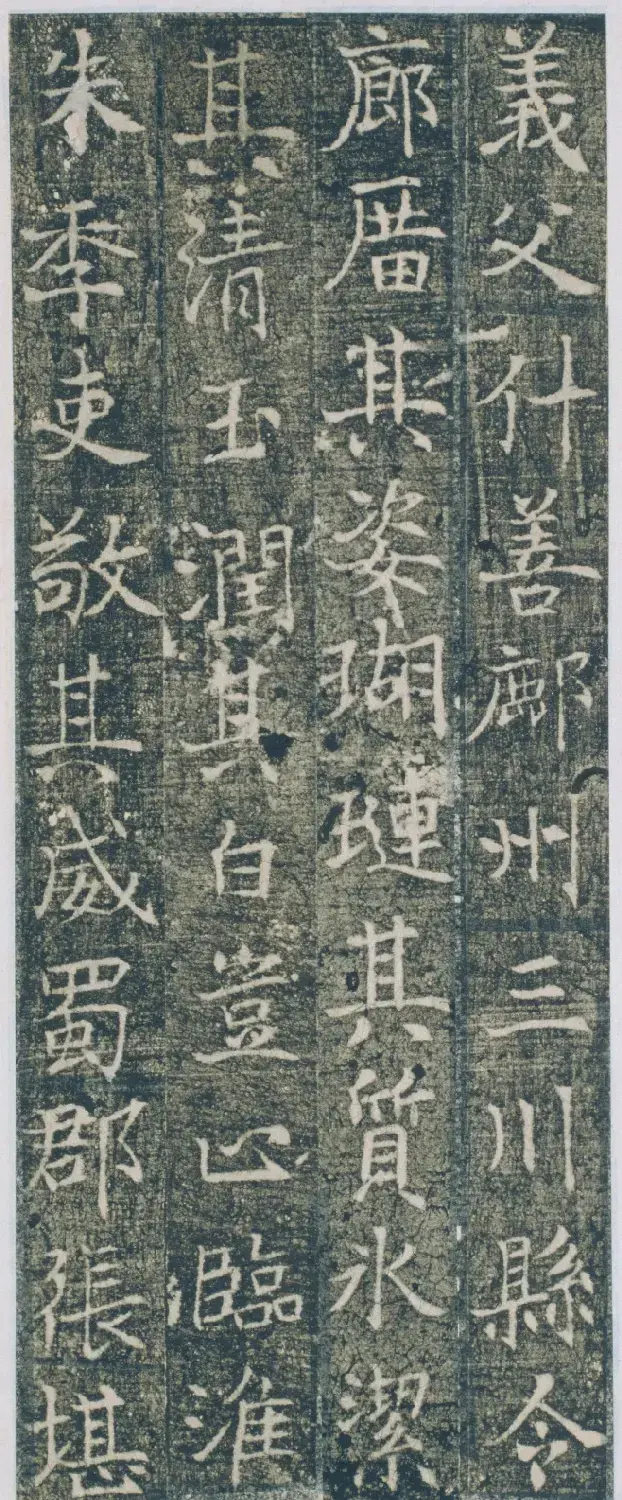 義父什善鄜州三川縣令
廊庿其姿瑚璉其質氷潔
其清玉潤其白豈止臨淮
朱季吏敬其威蜀郡張堪